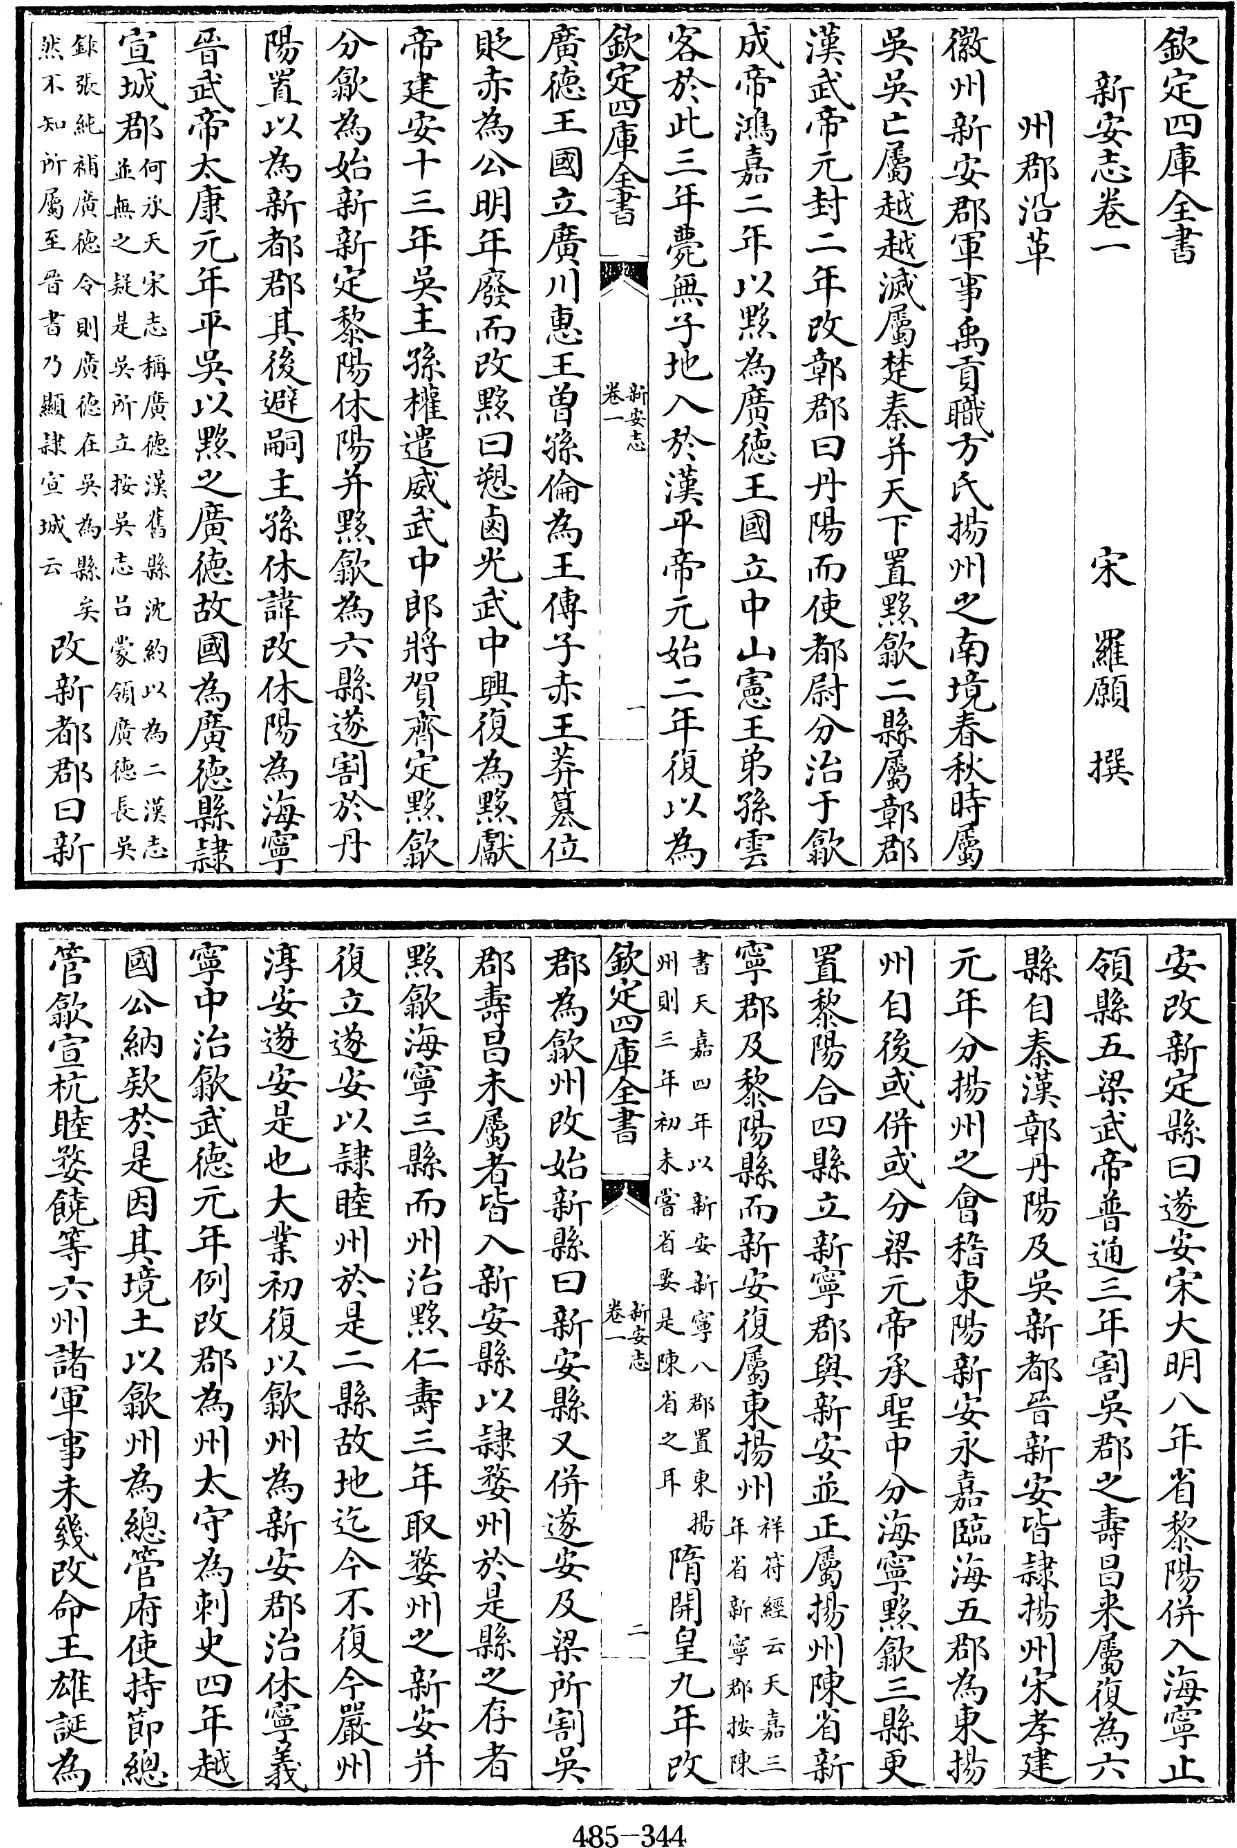 欽定四庫全書
新安志卷一
宋 羅願 撰
州郡沿革
徽州新安郡軍事禹貢職方氏揚州之南境春秋時屬
吳吳亡屬越越滅屬楚秦并天下置黟歙二縣屬鄣郡
漢武帝元封二年改鄣郡曰丹陽而使都尉分治于歙
成帝鴻嘉二年以黟為廣德王國立中山憲王弟孫雲
客於此三年薨無子地入於漢平帝元始二年復以為
欽定四庫全書
新安志
卷一
一
廣德王國立廣川惠王曾孫倫為王傳子赤王莽簒位
貶赤為公明年廢而改黟曰愬鹵光武中興復為黟獻
帝建安十三年吳主孫權遣威武中郎將賀齊定黟歙
分歙為始新新定黎陽休陽并黟歙為六縣遂割於丹
陽置以為新都郡其後避嗣主孫休諱改休陽為海寧
晉武帝太康元年平吳以黟之廣德故國為廣德縣隷
宣城郡
何承天宋志稱廣德漢舊縣沈約以為二漢志
並無之疑是吳所立按吳志呂蒙領廣德長吳
錄張純補廣德令則廣德在吳為縣矣
然不知所屬至晉書乃顯隷宣城云
改新都郡曰新
安改新定縣曰遂安宋大明八年省黎陽併入海寧止
領縣五梁武帝普通三年割吳郡之壽昌来屬復為六
縣自秦漢鄣丹陽及吳新都晉新安皆隷揚州宋孝建
元年分揚州之會稽東陽新安永嘉臨海五郡為東揚
州自後或併或分梁元帝承聖中分海寧黟歙三縣更
置黎陽合四縣立新寧郡與新安並正屬揚州陳省新
寧郡及黎陽縣而新安復屬東揚州
祥符經云天嘉三
年省新寧郡按陳
書天嘉四年以新安新寧八郡置東揚
州則三年初未嘗省要是陳省之耳
隋開皇九年改
欽定四庫全書
新安志
卷一
二
郡為歙州改始新縣曰新安縣又併遂安及梁所割吳
郡壽昌未屬者皆入新安縣以隷婺州於是縣之存者
黟歙海寧三縣而州治黟仁壽三年取婺州之新安并
復立遂安以隷睦州於是二縣故地迄今不復今嚴州
淳安遂安是也大業初復以歙州為新安郡治休寧義
寧中治歙武德元年例改郡為州太守為刺史四年越
國公納欵於是因其境土以歙州為總管府使持節總
管歙宣杭睦婺饒等六州諸軍事未幾改命王雄誕為
485-344